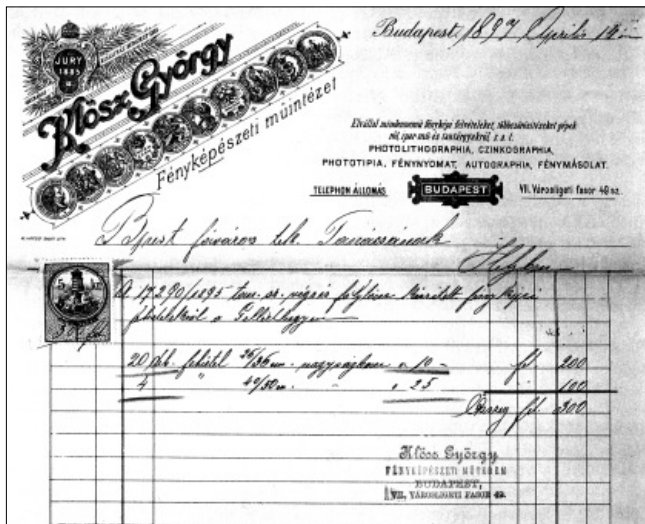 JURY
1885
Klösz György
Fényképészeti műintézet
Budapest, 1897 Április
Elvállal mindennemű fényképi felvételeket, többszörösítéseket gépek
s. a. t.
PHOTOLITHOGRAPHIA, CZINKOGRAPHIA,
PHOTOTIPIA, FÉNYNYOMAT, AUTOGRAPHIA, FÉNYMÁSOLAT.
TELEPHON ÁLLOMÁS
BUDAPEST
VII. Városligeti fasor 49 sz.
Bpest főváros tek. Tanácsának
Helyben
5 kr.
A 17290/1895 tan. sz. végzés folytán készített fényképi
felvételekről a Gellérthegyen
20 db. felvétel 26/36 cm. nagyságban a 10 – frt. 200
4 " 40/50 cm. " a 25 100
Összeg frt. 300
Klösz György
FÉNYKÉPÉSZETI MŰTEREM
BUDAPEST,
VII, VÁROSLIGETI FASOR 49.